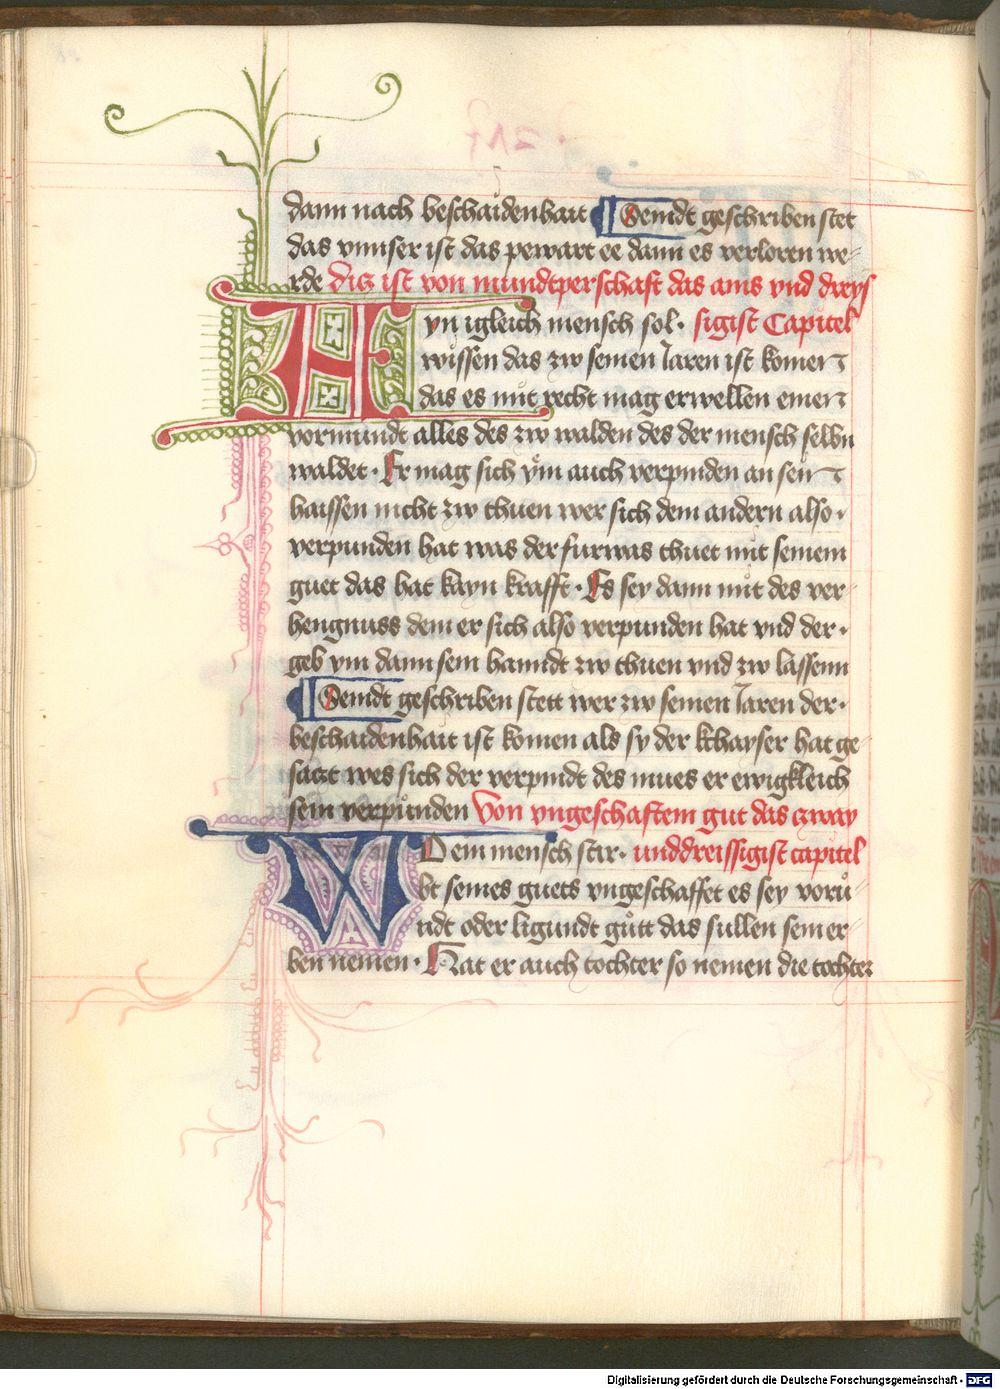 dann nach beschaidenhait Seindt geschriben stet
das vnnser ist das pewart ee dann es verloren we-
rde Dis ist von mundtperschaft das ains vnd dreys
Ayn igleich mensch sol · sigist Capitel
wissen das zw seinen Jaren ist komen
das es mit recht mag erwellen einen
vormundt alles des zw walden des der mensch selbn
waldet · Er mag sich ym auch verpinden an sein
haissen nicht zw thuen wer sich dem andern also ·
verpunden hat was der furwas thuet mit seinem
guet das hat kayn krafft · Es sey dann mit des ver-
hengnuss dem er sich also verpunden hat vnd der ·
geb ym dann sein hanndt zw thuen vnd zw lassenn
Seindt geschriben stett wer zw seinen Jaren der ·
beschaidenhait ist komen als sy der kchayser hat ge
satzt wes sich der verpindt des mues er ewigkleich
sein verpunden Von vngeschaftem gut das czway
WOem mensch stir · unddreissigist capitel
bt seines guets vngeschaffet es sey voru-
ndt oder ligundt gutt das sullen sein er-
ben nemen · Hat er auch tochter so nemen die tochter
Digitalisierung gefördert durch die Deutsche Forschungsgemeinschaft - DFG